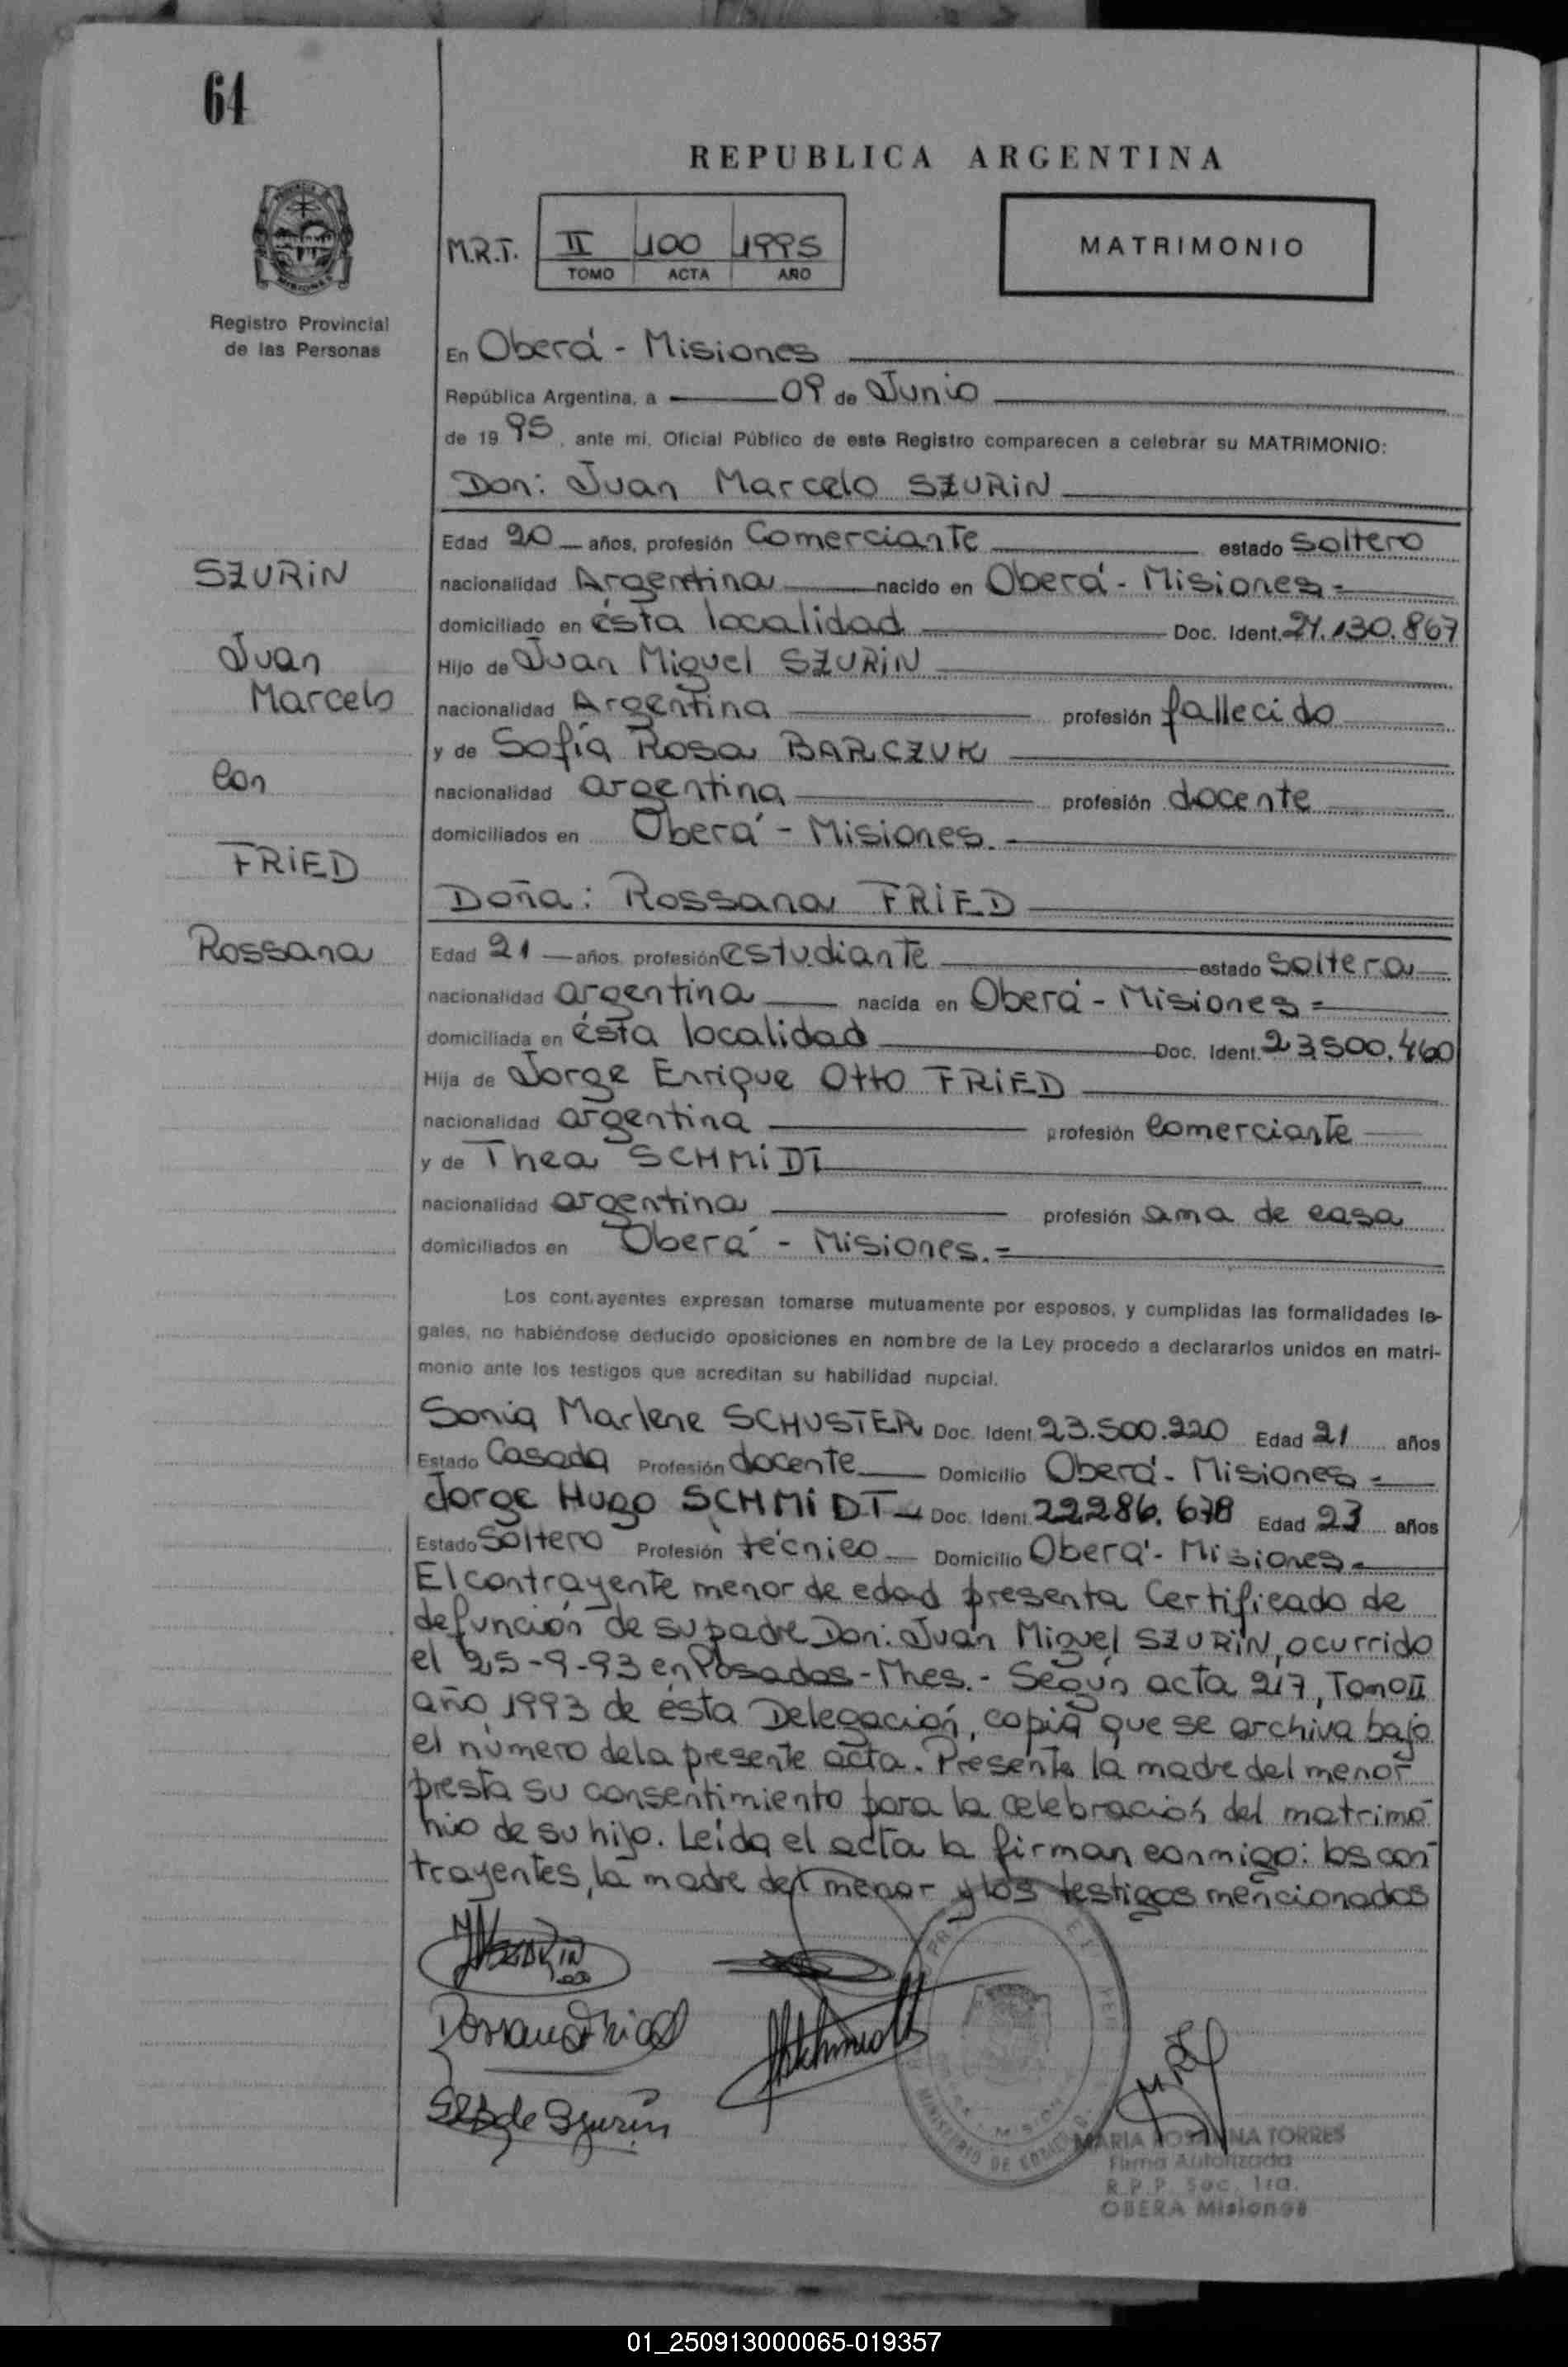 64
REPUBLICA ARGENTINA
M.R.T. II 100 1995
TOMO ACTA AÑO
MATRIMONIO
Registro Provincial
de las Personas
En Oberá - Misiones
República Argentina, a 09 de Junio
de 1995, ante mí, Oficial Público de este Registro comparecen a celebrar su MATRIMONIO:
Don: Juan Marcelo SZURIN
Edad 20 años, profesión Comerciante estado Soltero
SZURIN
nacionalidad Argentina nacido en Oberá - Misiones =
domiciliado en ésta localidad Doc. Ident. 24.130.867
Juan
Hijo de Juan Miguel SZURIN
Marcelo
nacionalidad Argentina profesión fallecido
y de Sofía Rosa BARCZUK
Con
nacionalidad argentina profesión docente
domiciliados en Oberá - Misiones.
FRIED
Doña: Rossana FRIED
Rossana
Edad 21 años, profesión estudiante estado Soltera
nacionalidad argentina nacida en Oberá - Misiones =
domiciliada en ésta localidad Doc. Ident. 23.500.460
Hija de Jorge Enrique Otto FRIED
nacionalidad argentina profesión Comerciante
y de Thea SCHMIDT
nacionalidad argentina profesión ama de casa
domiciliados en Oberá - Misiones. =
Los contrayentes expresan tomarse mutuamente por esposos, y cumplidas las formalidades le-
gales, no habiéndose deducido oposiciones en nombre de la Ley procedo a declararlos unidos en matri-
monio ante los testigos que acreditan su habilidad nupcial.
Sonia Marlene SCHUSTER Doc. Ident. 23.500.220 Edad 21 años
Estado Casada Profesión docente Domicilio Oberá - Misiones =
Jorge Hugo SCHMIDT Doc. Ident. 22.286.678 Edad 23 años
Estado Soltero Profesión técnico Domicilio Oberá - Misiones =
El contrayente menor de edad presenta Certificado de
defunción de su padre Don: Juan Miguel SZURIN, ocurrido
el 25-9-93 en Posadas - Mnes. - Según acta 217, Tomo II
año 1993 de ésta Delegación, copia que se archiva bajo
el número de la presente acta. Presente la madre del menor
presta su consentimiento para la celebración del matrimo-
nio de su hijo. Leída el acta la firman conmigo: los con-
trayentes, la madre del menor y los testigos mencionados
Rossana Fried
de Szurin
MINISTERIO DE
MARIA ROSANNA TORRES
Firma Autorizada
R.P.P. Sec. 1ra.
OBERA Misiones
01_250913000065-019357